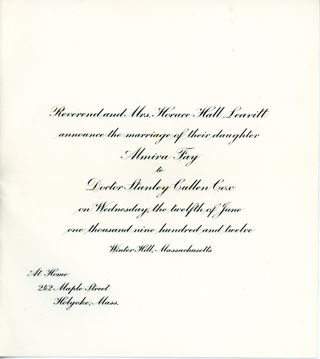 Reverend and Mrs. Horace Hall Leavitt
announce the marriage of their daughter
Almira Fay
to
Doctor Stanley Cullen Cox
on Wednesday, the twelfth of June
one thousand nine hundred and twelve
Winter Hill, Massachusetts
At Home
242 Maple Street
Holyoke, Mass.